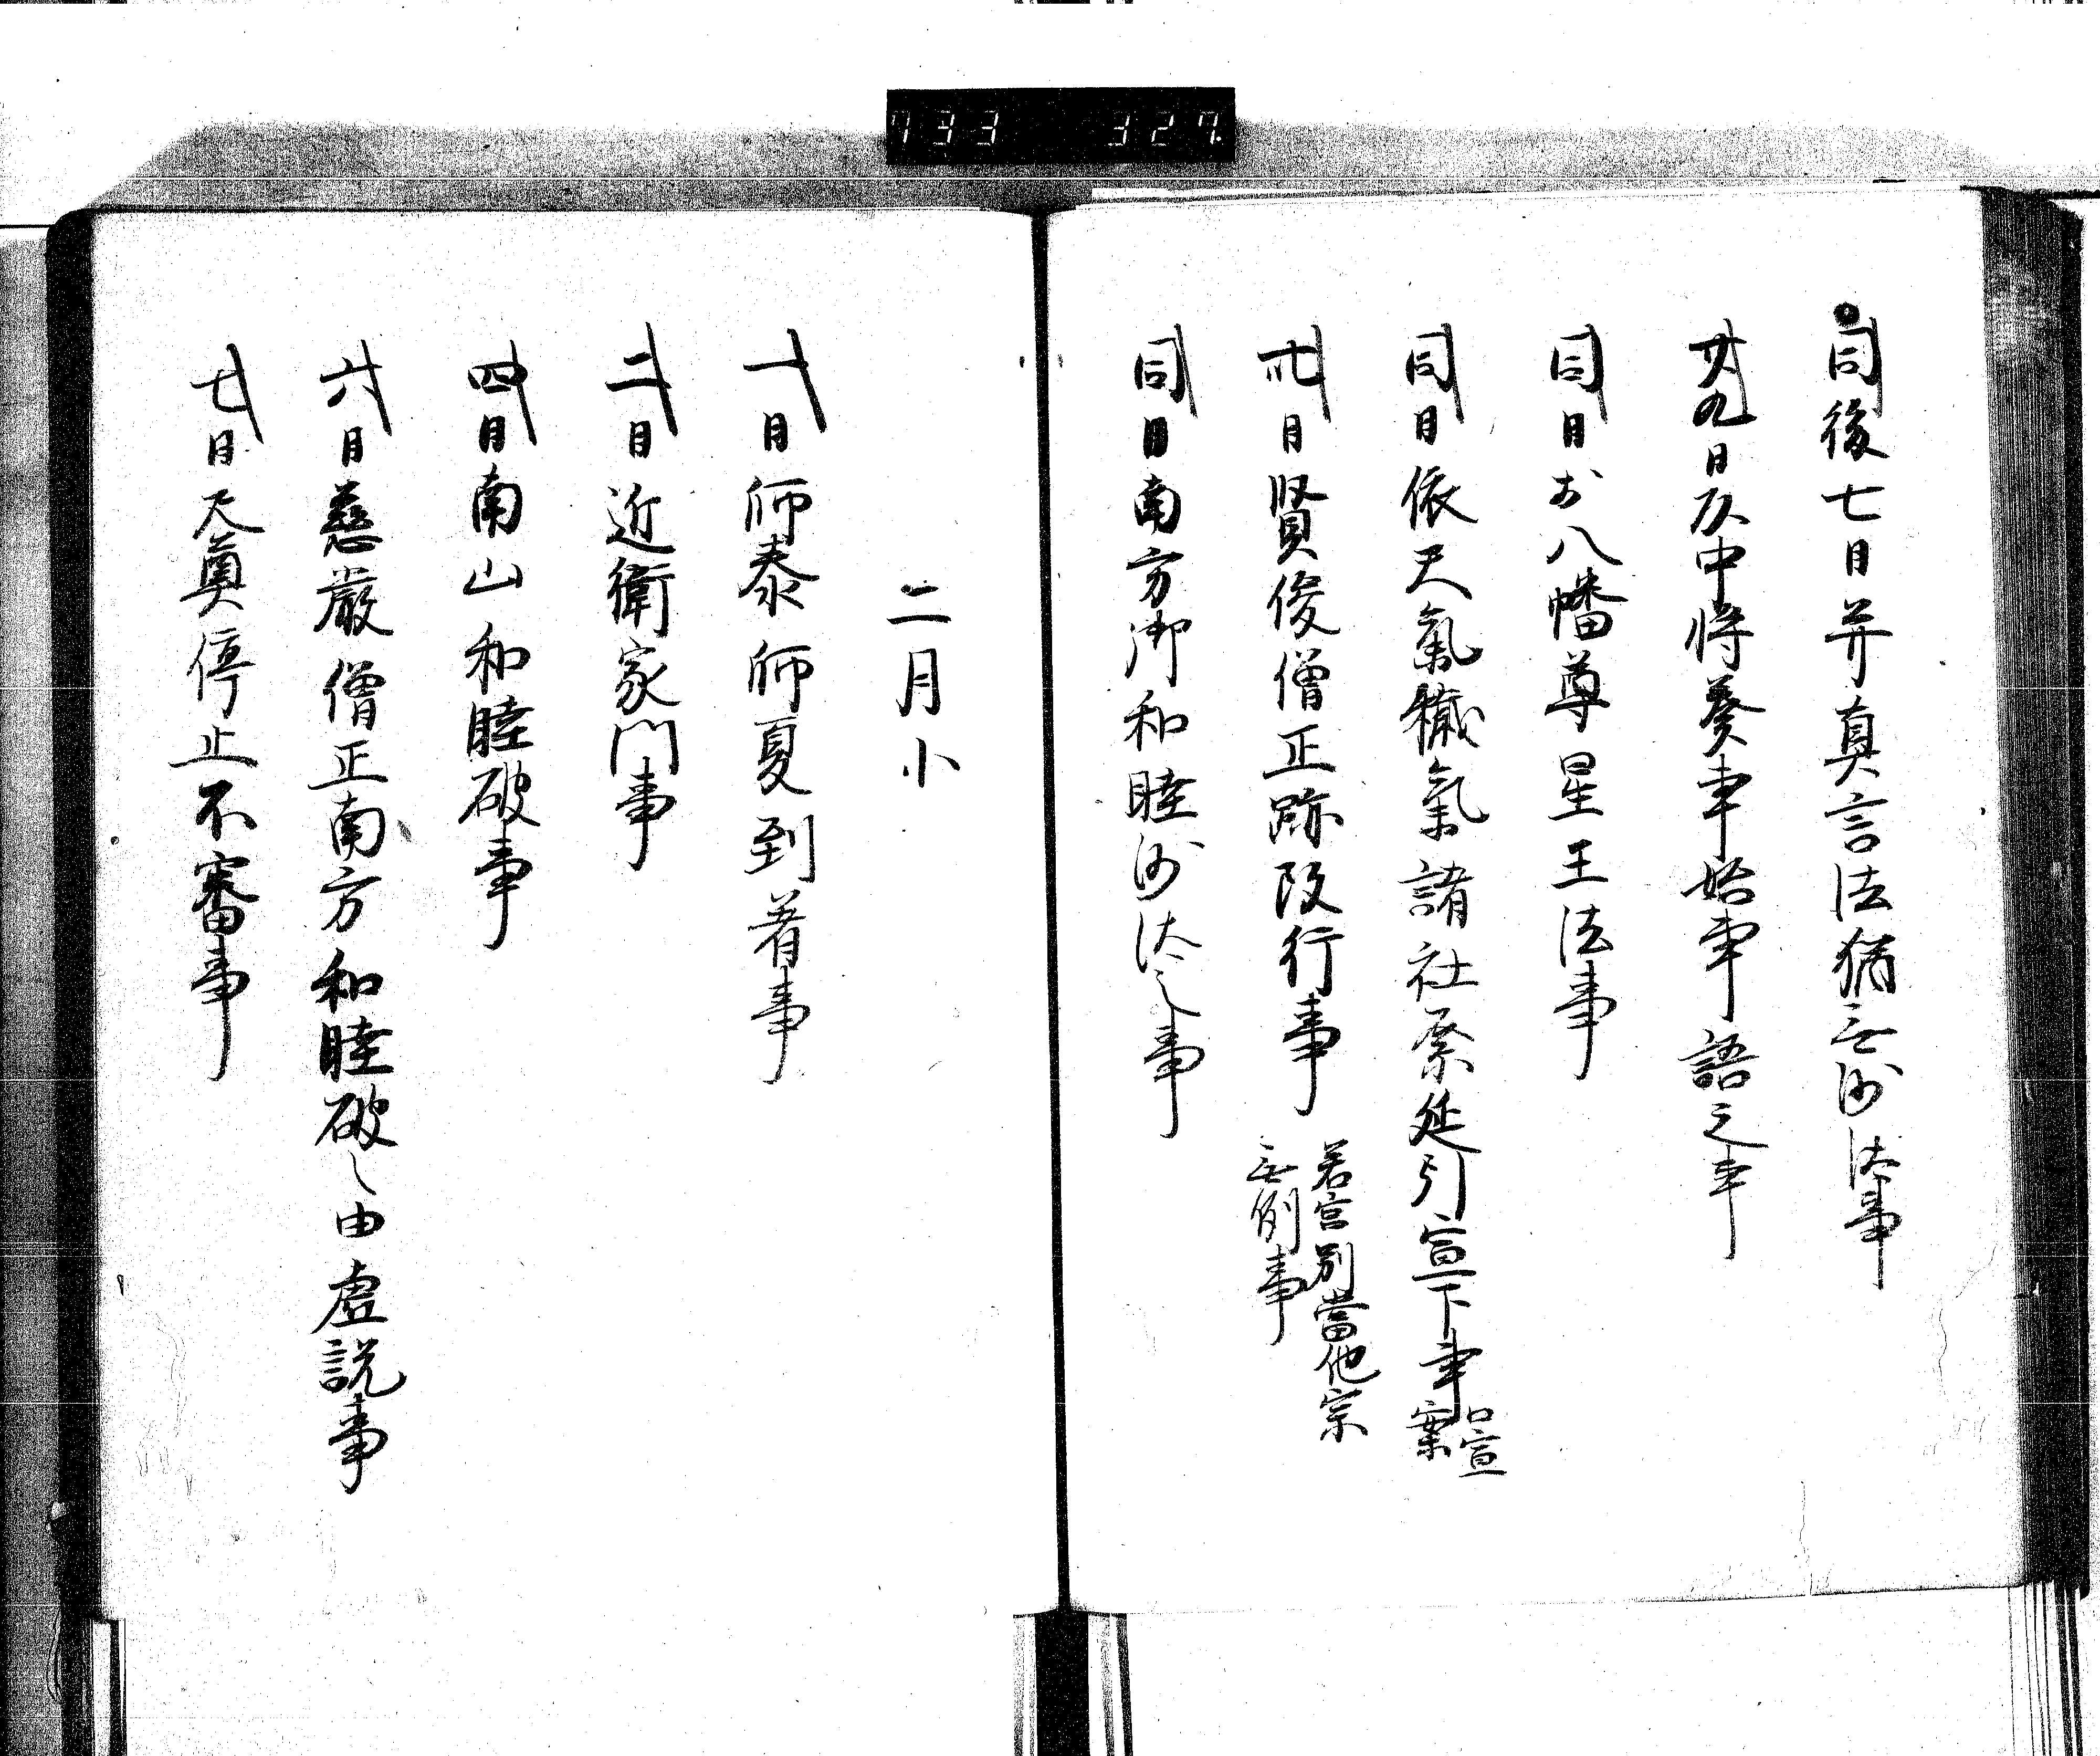 733 327
同後七日并真言法猶無沙汰事
廿九日仄中将奏事始事語之事
同日於八幡尊星王法事
同日依天氣穢氣諸社祭延引宣下事 口宣案
卅日賢俊僧正跡改行事 若宮別當他宗無例事
同日南方御和睦沙汰之事
二月小
一日師泰師夏到着事
二日近衛家門事
四日南山和睦破事
六日慈嚴僧正南方和睦破之由虚説事
七日尺奠停止不審事